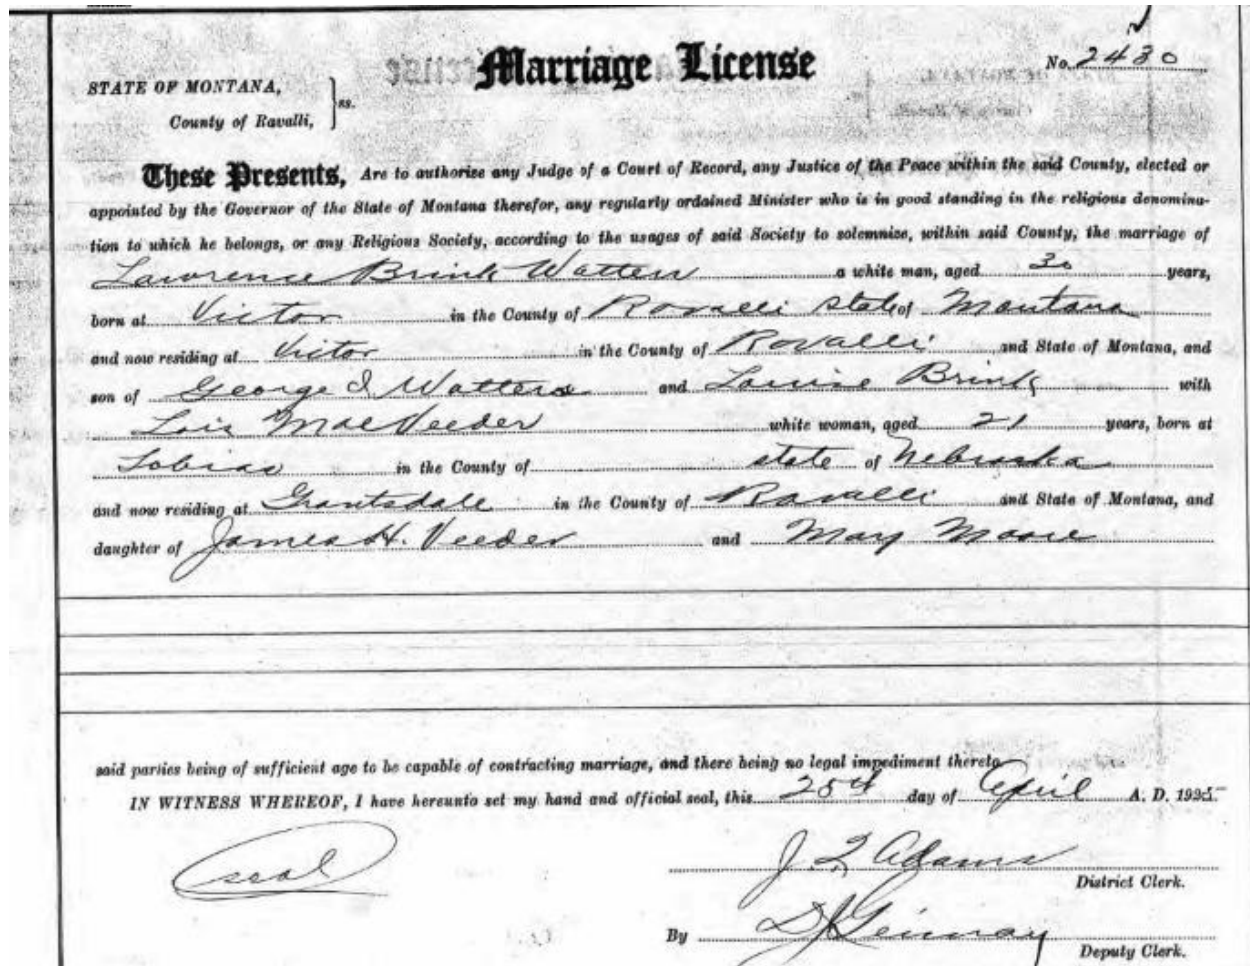 Marriage License
No. 2430
STATE OF MONTANA,
County of Ravalli,
ss.
These Presents, Are to authorize any Judge of a Court of Record, any Justice of the Peace within the said County, elected or
appointed by the Governor of the State of Montana therefor, any regularly ordained Minister who is in good standing in the religious denomina-
tion to which he belongs, or any Religious Society, according to the usages of said Society to solemnize, within said County, the marriage of
Lawrence Brink Watters a white man, aged 30 years,
born at Victor in the County of Ravalli state of Montana
and now residing at Victor in the County of Ravalli and State of Montana, and
son of George I Watters and Louise Brink with
Lois Mae Veeder white woman, aged 21 years, born at
Tobias in the County of state of Nebraska
and now residing at Grantsdale in the County of Ravalli and State of Montana, and
daughter of James H. Veeder and Mary Moore
said parties being of sufficient age to be capable of contracting marriage, and there being no legal impediment thereto
IN WITNESS WHEREOF, I have hereunto set my hand and official seal, this 25th day of April A. D. 1925
seal
J. Q Adams
District Clerk.
By
Deputy Clerk.